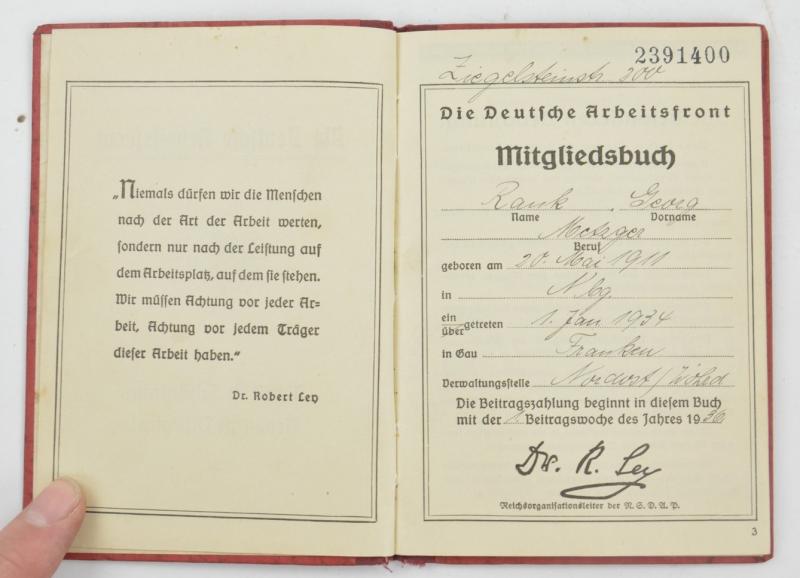 „Niemals dürfen wir die Menschen
nach der Art der Arbeit werten,
sondern nur nach der Leistung auf
dem Arbeitsplatz, auf dem sie stehen.
Wir müssen Achtung vor jeder Ar-
beit, Achtung vor jedem Träger
dieser Arbeit haben.“
Dr. Robert Ley
2391400
Ziegelsteinstr. 200
Die Deutsche Arbeitsfront
Mitgliedsbuch
Rank Georg
Name Vorname
Metzger
Beruf
geboren am 20. Mai 1911
in Nbg.
ein
über getreten 1. Jan 1934
in Gau Franken
Verwaltungsstelle Nordost /
Die Beitragszahlung beginnt in diesem Buch
mit der 1. Beitragswoche des Jahres 1936
Dr. R. Ley
Reichsorganisationsleiter der N.S.D.A.P.
3